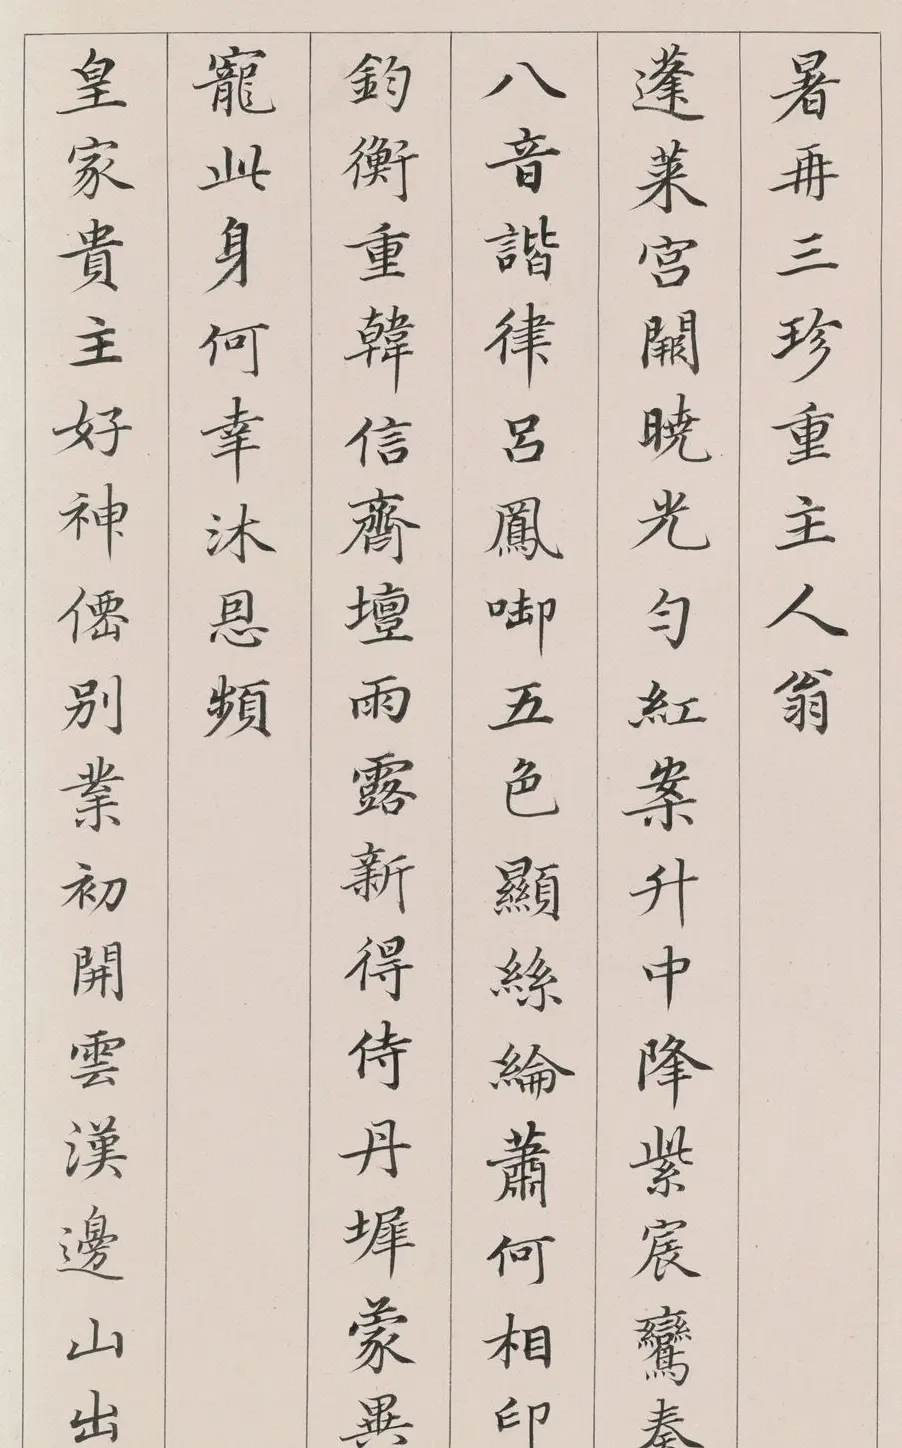 暑再三珍重主人翁
蓬萊宮闕曉光勻紅案升中降紫宸鸞奏
八音諧律呂鳳啣五色顯絲綸蕭何相印
鈞衡重韓信齋壇雨露新得侍丹墀蒙異
寵此身何幸沐恩頻
皇家貴主好神僊別業初開雲漢邊山出